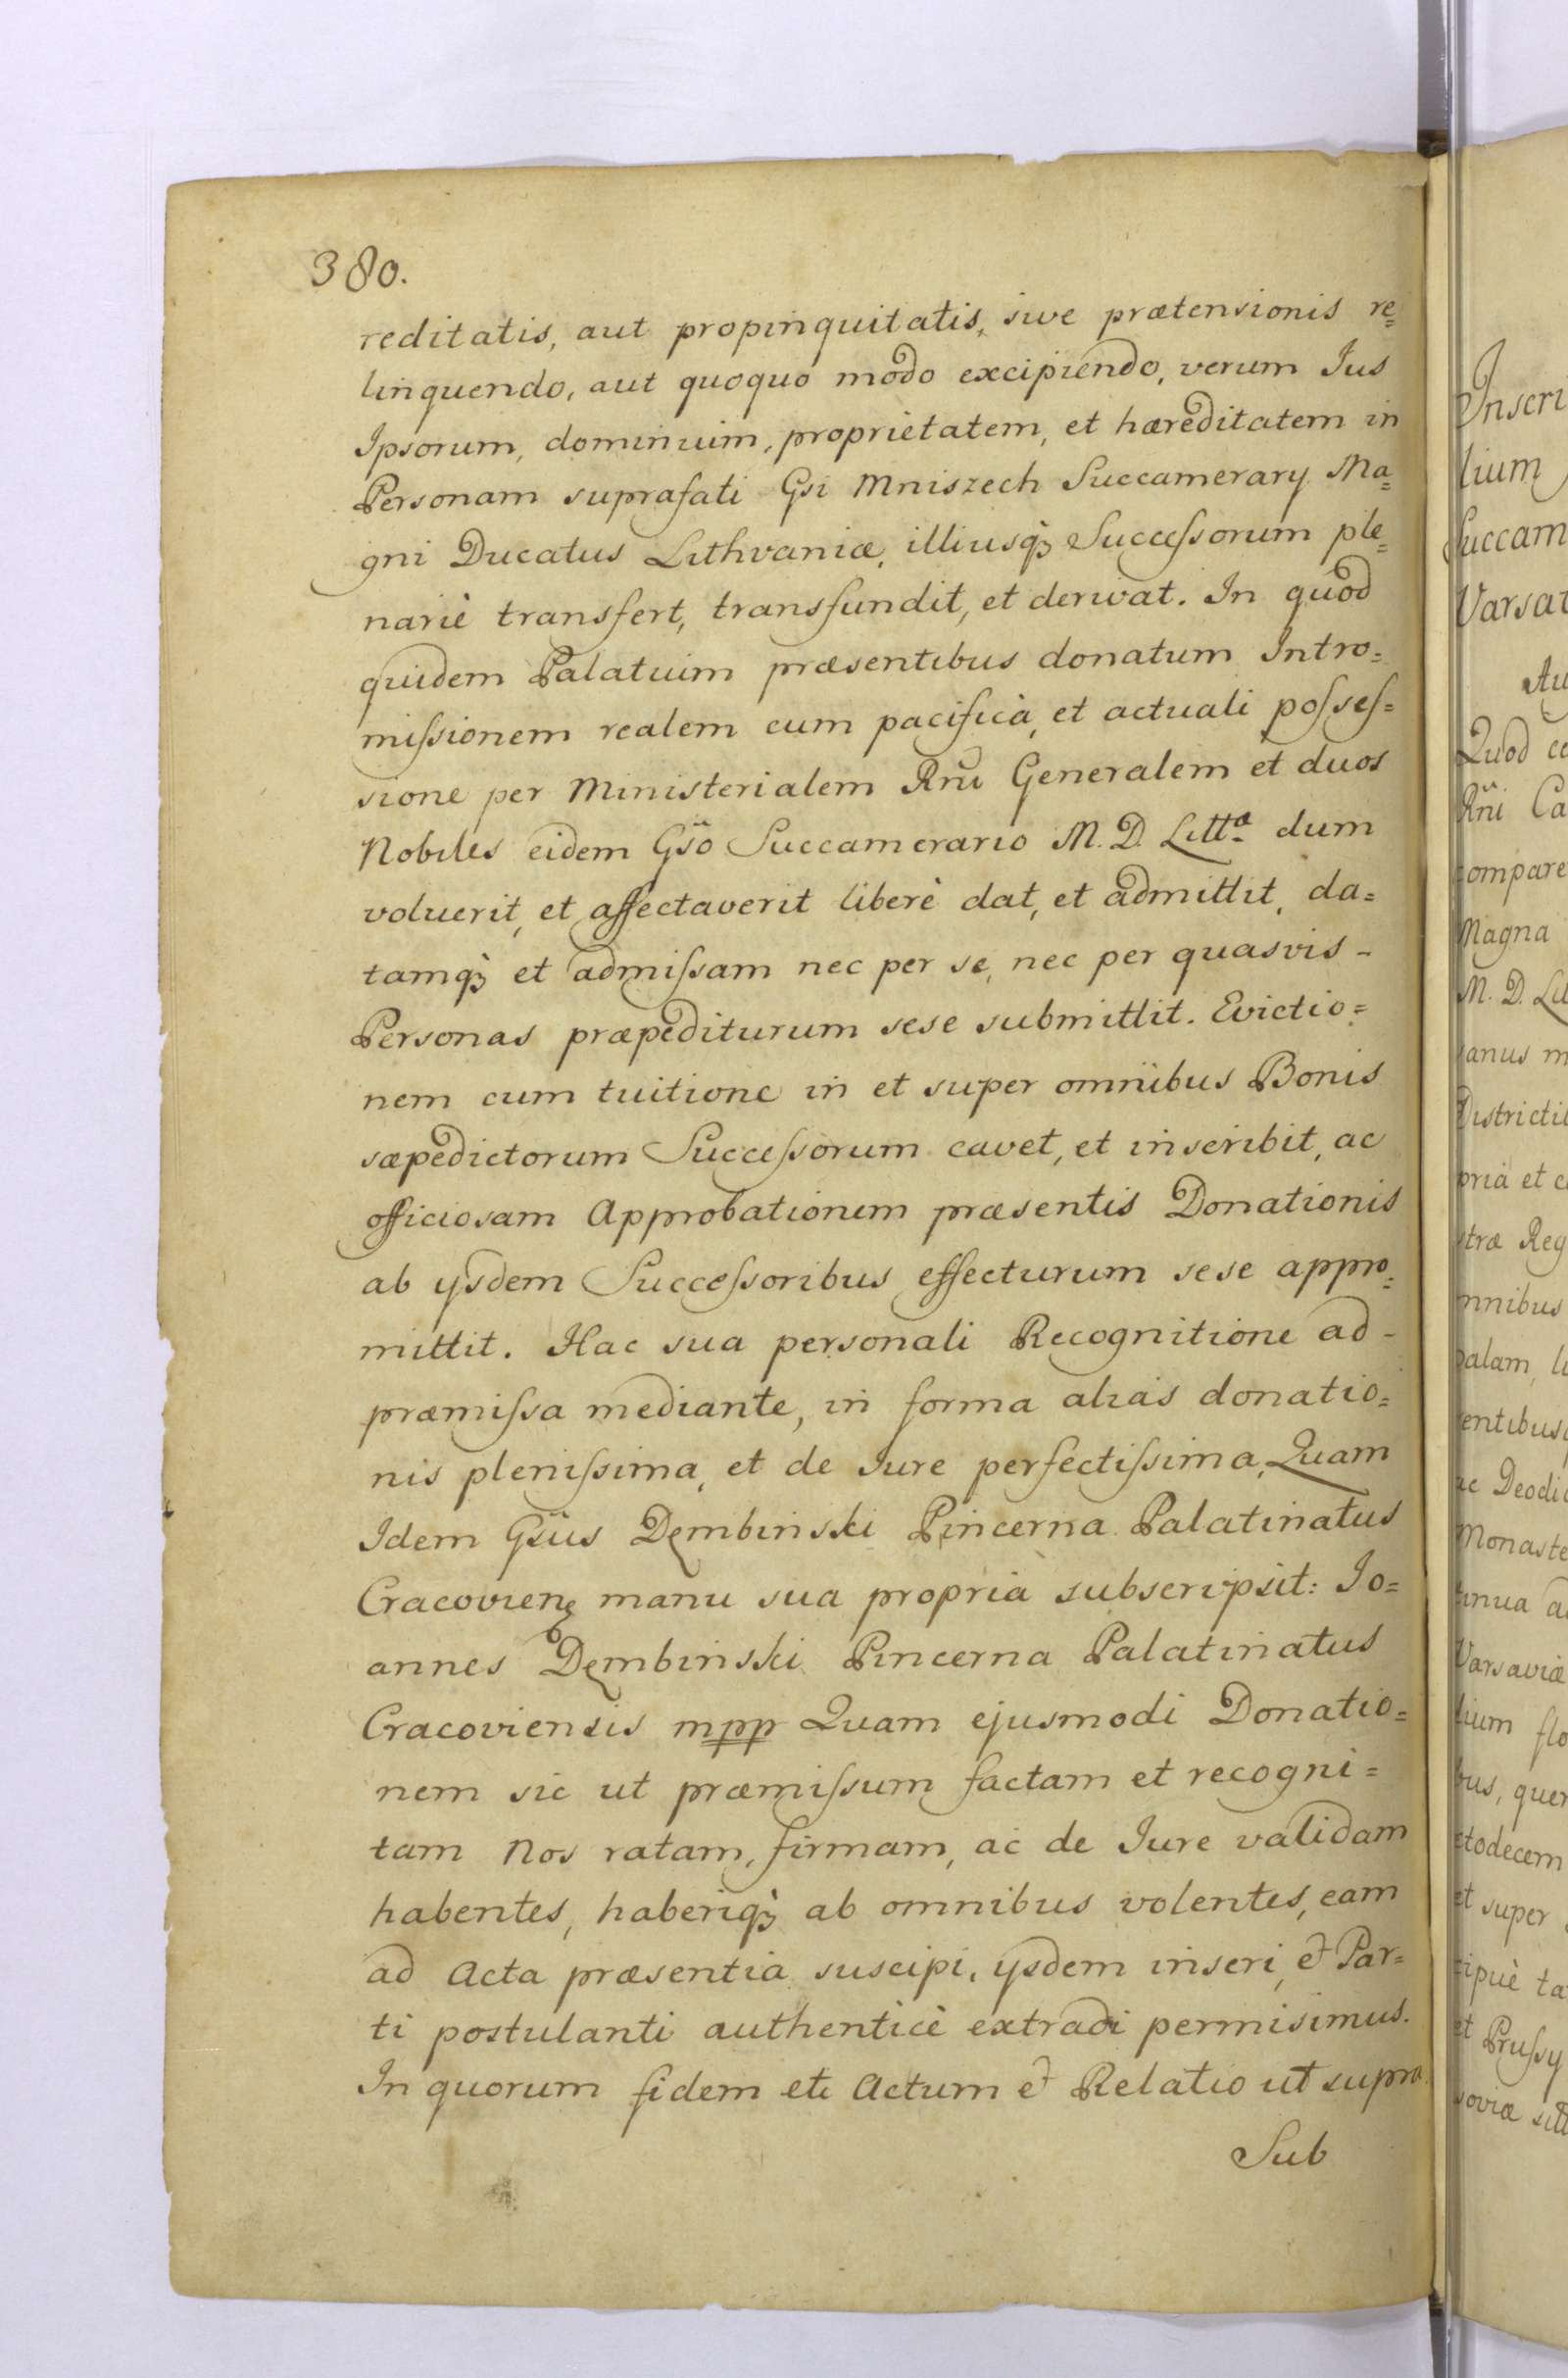 380.
reditatis, aut propinquitatis, sive prætensionis re=
linquendo, aut quoquo modo excipiendo, verum Jus
Ipsorum, dominium, proprietatem, et hæreditatem in
Personam suprafati Gsi Mniszech Succamerary Ma=
gni Ducatus Lithvaniæ, illiusq₃ Succeſsorum ple=
nariè transfert, transfundit, et derivat. In quod
quidem Palatium præsentibus donatum Intro=
miſsionem realem cum pacificà, et actuali poſseſ=
sione per Ministerialem Rñi Generalem et duos
Nobiles eidem Gs̃o Succamerario M. D. Littᵃ dum
voluerit, et affectaverit liberè dat, et admittit, da=
tamq₃ et admiſsam nec per se, nec per quasvis -
Personas præpediturum sese submittit. Evictio=
nem cum tuitione in et super omnibus Bonis
sæpedictorum Succeſsorum cavet, et inscribit, ac
officiosam Approbationem præsentis Donationis
ab ysdem Succeſsoribus effecturum sese appro=
mittit. Hac sua personali Recognitione ad -
præmiſsa mediante, in forma aliàs donatio=
nis pleniſsima, et de Jure perfectiſsima, Quam
Idem Gs̃us Dembinski Pincerna Palatinatus
Cracovienę manu sua propria subscripsit: Jo=
annes Dembinski Pincerna Palatinatus
Cracoviensis mpp Quam ejusmodi Donatio=
nem sic ut præmiſsum factam et recogni=
tam Nos ratam, firmam, ac de Jure validam
habentes, haberiq₃ ab omnibus volentes, eam
ad Acta præsentia suscipi, ysdem inseri, & Par=
ti postulanti authenticè extradi permisimus.
In quorum fidem etc Actum & Relatio ut supra.
Sub
Inseri
lium
Succam
Varsav
Quod
Rñi Ca
compare
Magna
M. D.
anus m
Districti
pria et
træ Reg
mnibus
palam,
entibus
ac Deodi
Monaste
tinua
Varsaviæ
lium flo
bus, quer
todecem
et super
et Pruſsy